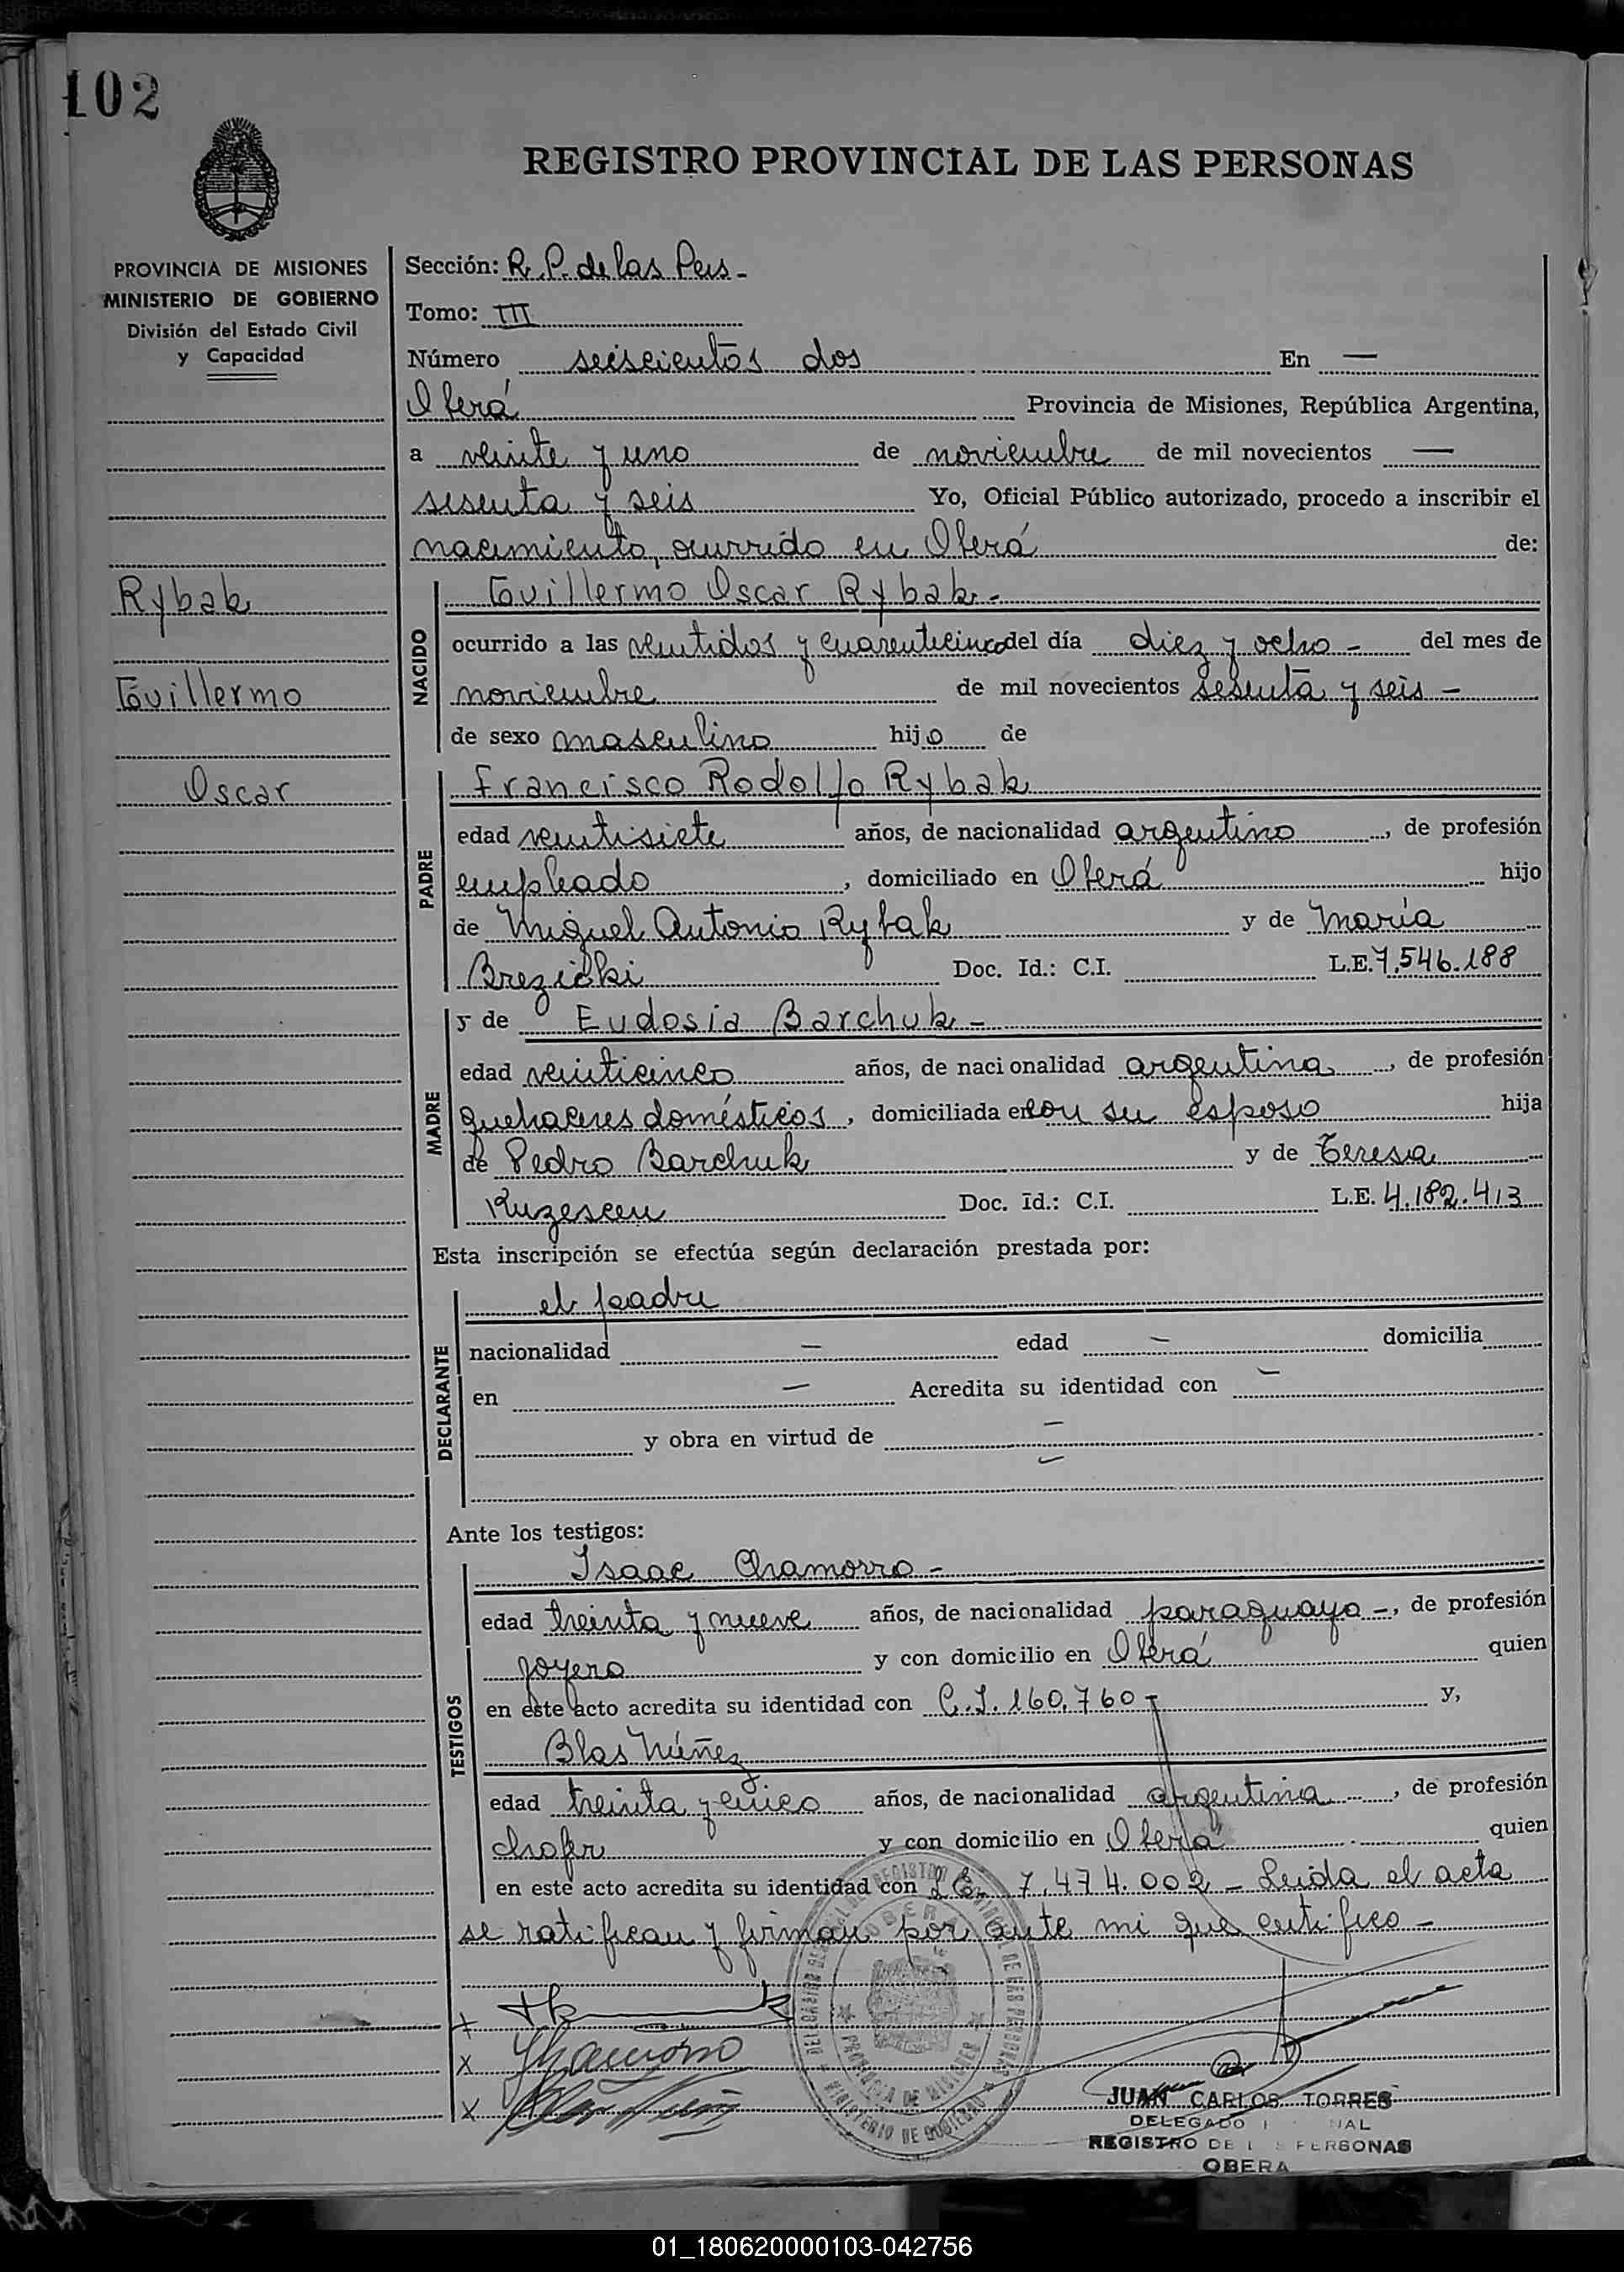 102
REGISTRO PROVINCIAL DE LAS PERSONAS
PROVINCIA DE MISIONES
MINISTERIO DE GOBIERNO
División del Estado Civil
y Capacidad
Rybak
Guillermo
Oscar
Sección: R. P. de las Pers -
Tomo: III
Número seiscientos dos En —
Oberá Provincia de Misiones, República Argentina,
a veinte y uno de noviembre de mil novecientos —
sesenta y seis Yo, Oficial Público autorizado, procedo a inscribir el
nacimiento, ocurrido en Oberá de:
NACIDO
Guillermo Oscar Rybak -
ocurrido a las ventidos y cuarenticinco del día diez y ocho - del mes de
noviembre de mil novecientos sesenta y seis -
de sexo masculino hijo de
PADRE
Francisco Rodolfo Rybak
edad ventisiete años, de nacionalidad argentino, de profesión
empleado, domiciliado en Oberá hijo
de Miguel Antonio Rybak y de María
Doc. Id.: C.I. L.E. 7.546.188
MADRE
y de Eudosia Barchuk -
edad veinticinco años, de nacionalidad argentina, de profesión
quehaceres domésticos, domiciliada en con su esposo hija
de Pedro Barchuk y de Teresa
Doc. Id.: C.I. L.E. 4.182.413
Esta inscripción se efectúa según declaración prestada por:
DECLARANTE
el padre
nacionalidad — edad — domicilia
en — Acredita su identidad con —
y obra en virtud de —
—
Ante los testigos:
TESTIGOS
Isaac Chamorro -
edad treinta y nueve años, de nacionalidad paraguayo -, de profesión
joyero y con domicilio en Oberá quien
en este acto acredita su identidad con C.I. 160.760 - y,
Blas Núñez
edad treinta y cinco años, de nacionalidad argentina, de profesión
chofer y con domicilio en Oberá quien
en este acto acredita su identidad con L.E. 7.474.002 - Leida el acta
se ratifican y firman por ante mi que certifico -
x
x
x
PROVINCIA DE MISIONES
MINISTERIO DE GOBIERNO
JUAN CARLOS TORRES
DELEGADO
REGISTRO DE PERSONAS
OBERA
01_180620000103-042756